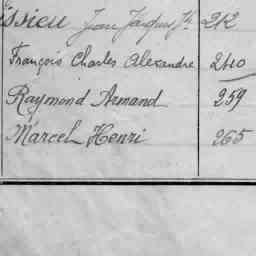 issieu Jean Jacques Th. 212
François Charles Alexandre 240
Raymond Armand 259
Marcel Henri 265